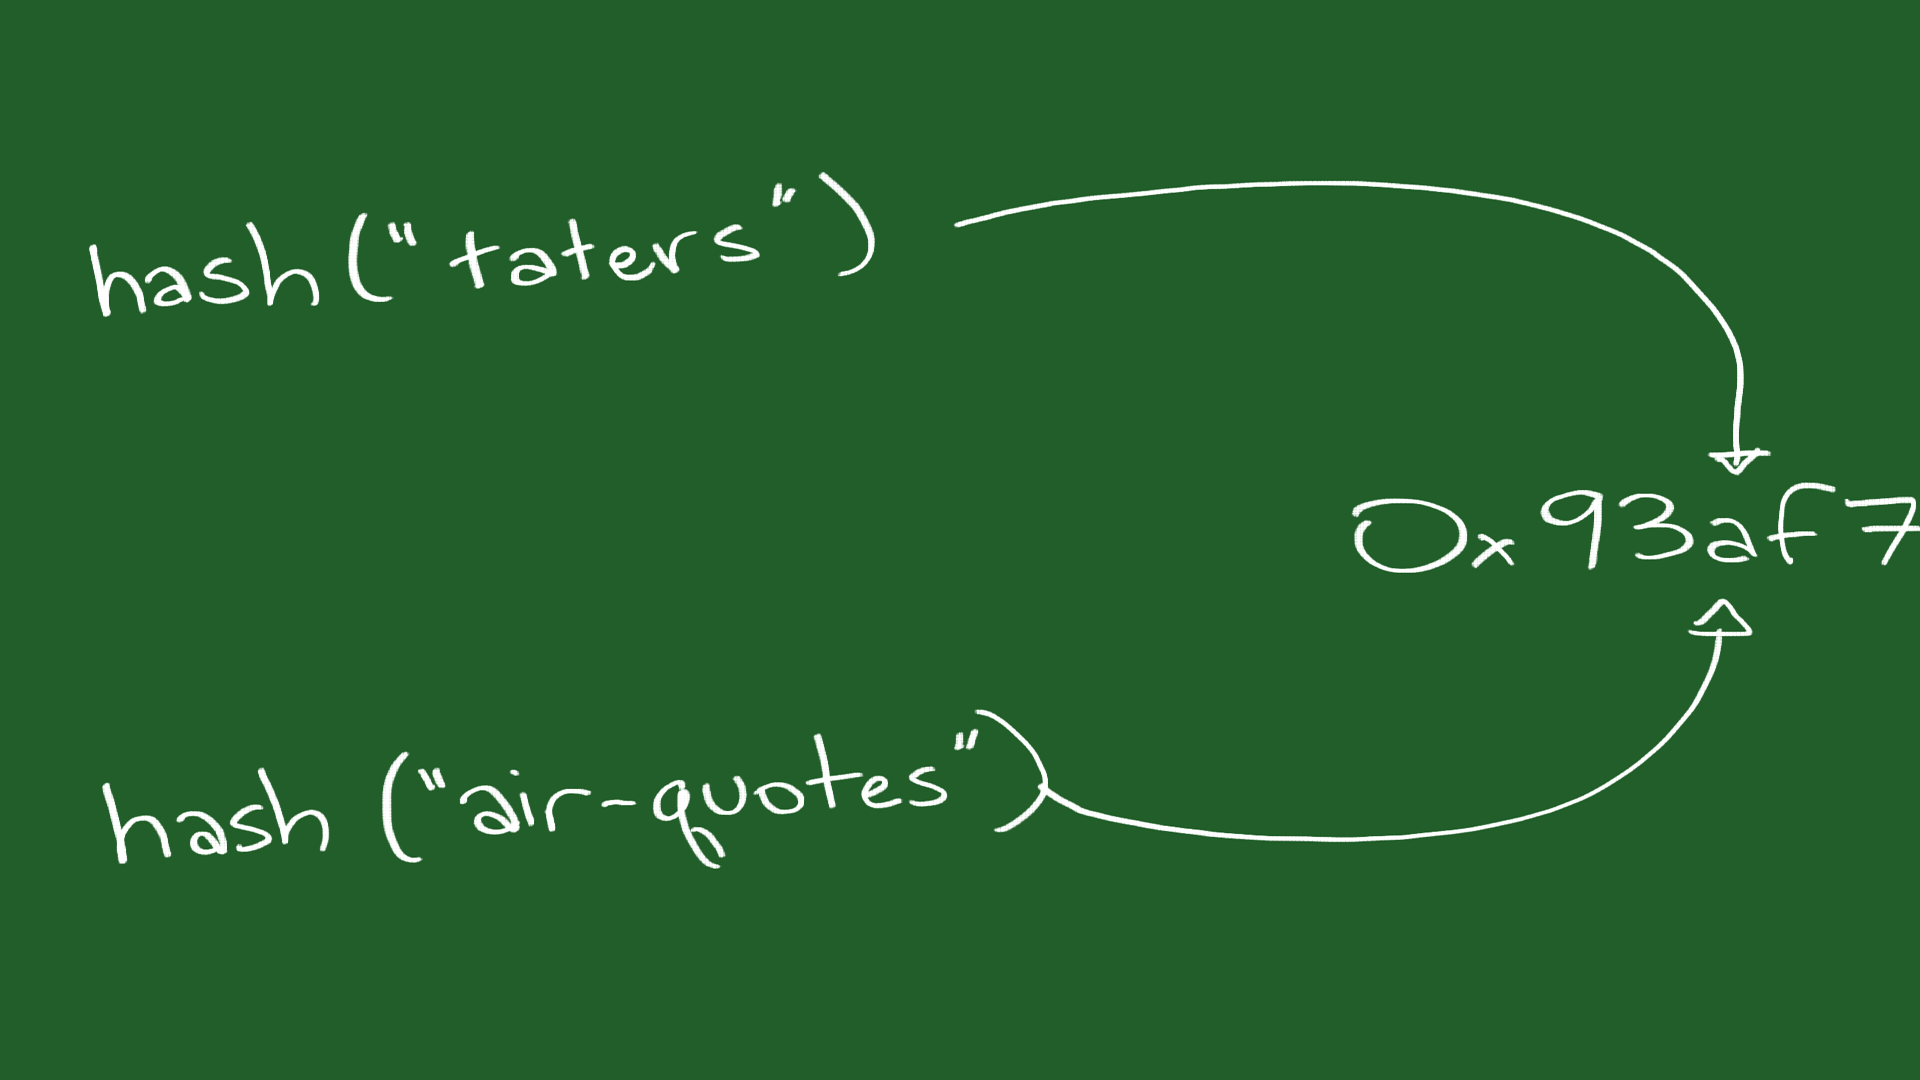 hash("taters")
0x93af7
hash ("air-quotes")